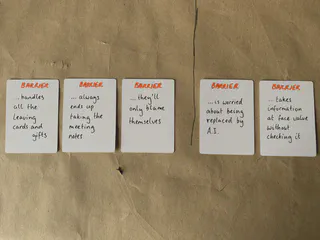 BARRIER
...handles
all the
leaving
cards and
gifts
BARRIER
...always
ends up
taking the
meeting
notes
BARRIER
...they'll
only blame
themselves
BARRIER
...is worried
about being
replaced by
A.I.
BARRIER
...takes
information
at face value
without
checking it